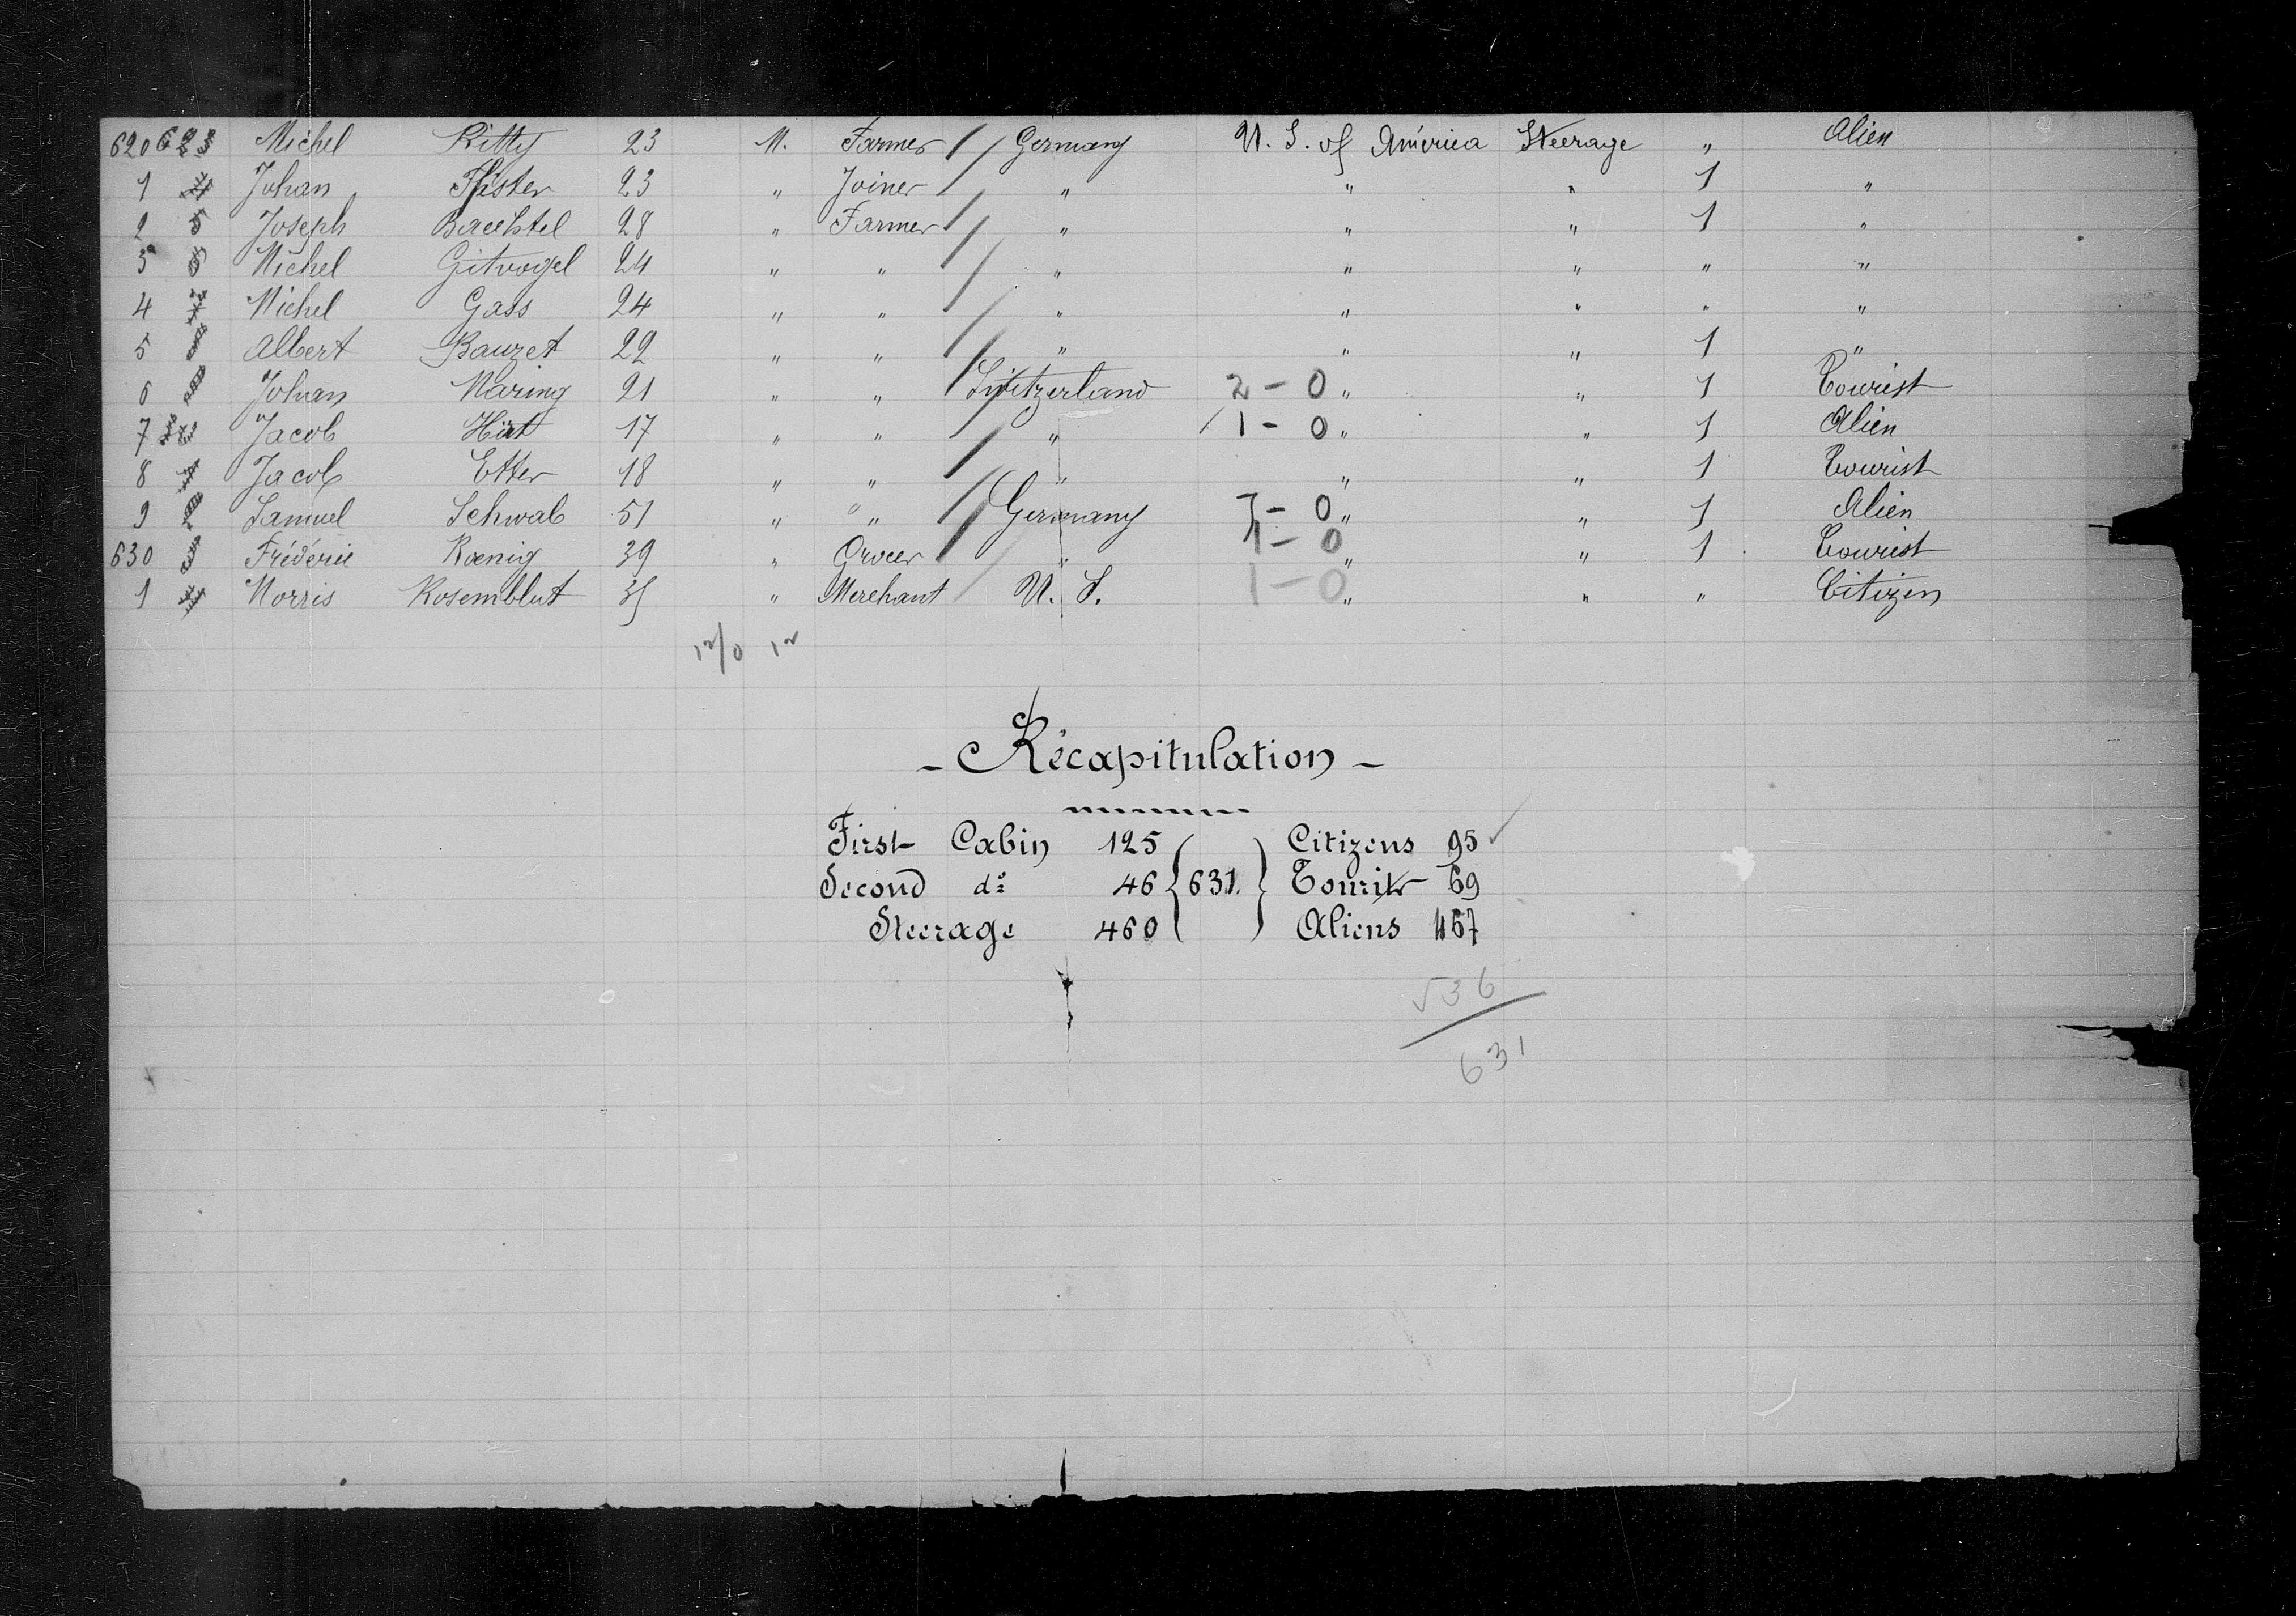 620 623 Michel Kitty 23 M. Farmer Germany U. S. of América Steerage " Alien
1 Johan Pfister 23 " Joiner " " " 1 "
2 5 Joseph Baechtel 28 " Farmer " " " 1 "
3 Michel Gitvogel 24 " " " " " " "
4 Michel Gass 24 " " " " " " "
5 Albert Bauzet 22 " " " " " 1 "
6 Johan Maring 21 " " Switzerland 2 - 0 " " 1 Tourist
7 Jacob Hirt 17 " " " 1 - 0 " " 1 Alien
8 Jacob Etter 18 " " " " " 1 Tourist
9 Samuel Schwab 51 " " Germany 7 - 0 " " 1 Alien
630 Fréderic Kœnig 39 " Grocer " 1 - 0 " " 1 Tourist
1 Morris Rosemblut 35 " Merchant U. S. 1 - 0 " " " Citizen
12/0 12
- Récapitulation -
First Cabin 125 Citizens 95 ✓
Second do 46 { 631. } Tourist 69
Steerage 460 Aliens 467
536
631